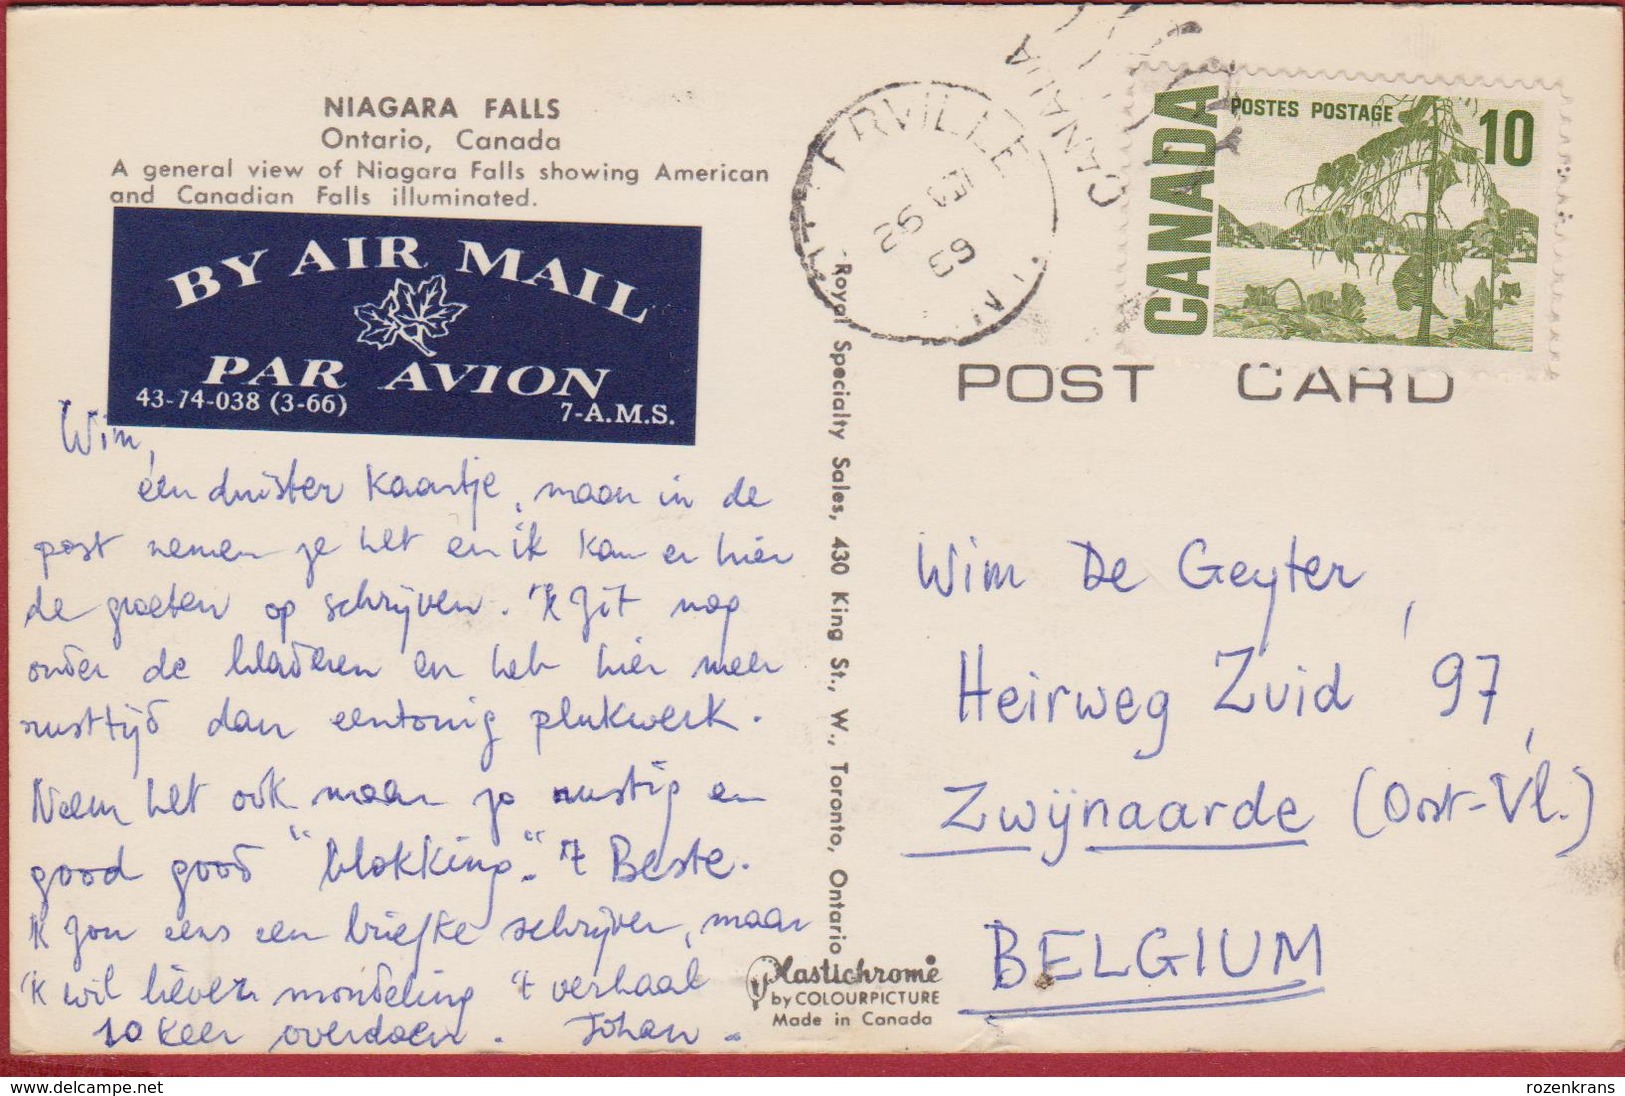 NIAGARA FALLS
Ontario, Canada
A general view of Niagara Falls showing American
and Canadian Falls illuminated.
BY AIR MAIL
PAR AVION
43-74-038 (3-66)
7-A.M.S.
Wim,
één duister kaartje, maar in de
post nemen ze het en ik kan er hier
de groeten op schrijven. 'k Zit nog
onder de bladeren en heb hier meer
rusttijd dan eentonig plukwerk.
Neem het ook maar zo rustig en
good good "blokking". 't Beste.
'k Zou eens een briefke schrijven, maar
'k wil liever mondeling 't verhaal
10 keer overdoen. Johan.
Royal Specialty Sales, 430 King St., W., Toronto, Ontario
Plastichrome
by COLOURPICTURE
Made in Canada
RVILLE
CANADA
CANADA
POSTES POSTAGE
10
POST CARD
Wim De Geyter,
Heirweg Zuid 97,
Zwijnaarde (Oost-Vl.)
BELGIUM
www.delcampe.net
rozenkrans